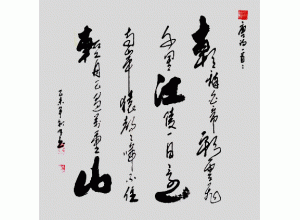 唐诗一首
朝辞白帝彩雲间
千里江陵一日还
两岸猿声啼不住
轻舟已过万重山